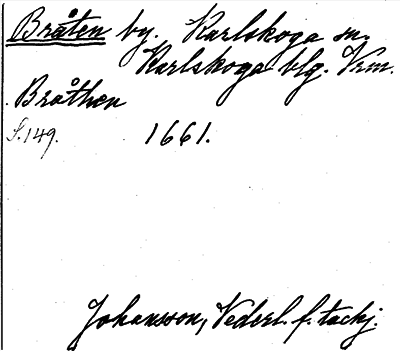 Bråten by. Karlskoga sn.
Karlskoga blg. Vrm.
Bråthen
S.149. 1661.
Johansson, Vederl. f. tackj.